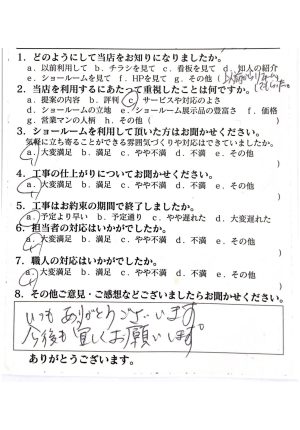 1．どのようにして当店をお知りになりましたか。
a．以前利用して b．チラシを見て c．看板を見て d．知人の紹介
e．ショールームを見て f．HPを見て g．その他（
2．当店を利用するにあたって重視したことは何ですか。
a．提案の内容 b．評判 c．サービスや対応のよさ
d．ショールームの立地 e．ショールーム展示品の豊富さ f．価格
g．営業マンの人柄 h．その他（ ）
3．ショールームを利用して頂いた方はお聞かせください。
気軽に立ち寄ることができる雰囲気づくりや対応はできていましたか。
a．大変満足 b．満足 c．やや不満 d．不満 e．その他
4．工事の仕上がりについてお聞かせください。
a．大変満足 b．満足 c．やや不満 d．不満 e．その他
5．工事はお約束の期間で終了しましたか。
a．予定より早い b．予定通り c．やや遅れた d．大変遅れた
6．担当者の対応はいかがでしたか。
a．大変満足 b．満足 c．やや不満 d．不満 e．その他
7．職人の対応はいかがでしたか。
a．大変満足 b．満足 c．やや不満 d．不満 e．その他
8．その他ご意見・ご感想などございましたらお聞かせください。
いつもありがとうございます
今後も宜しくお願いします。
ありがとうございます。